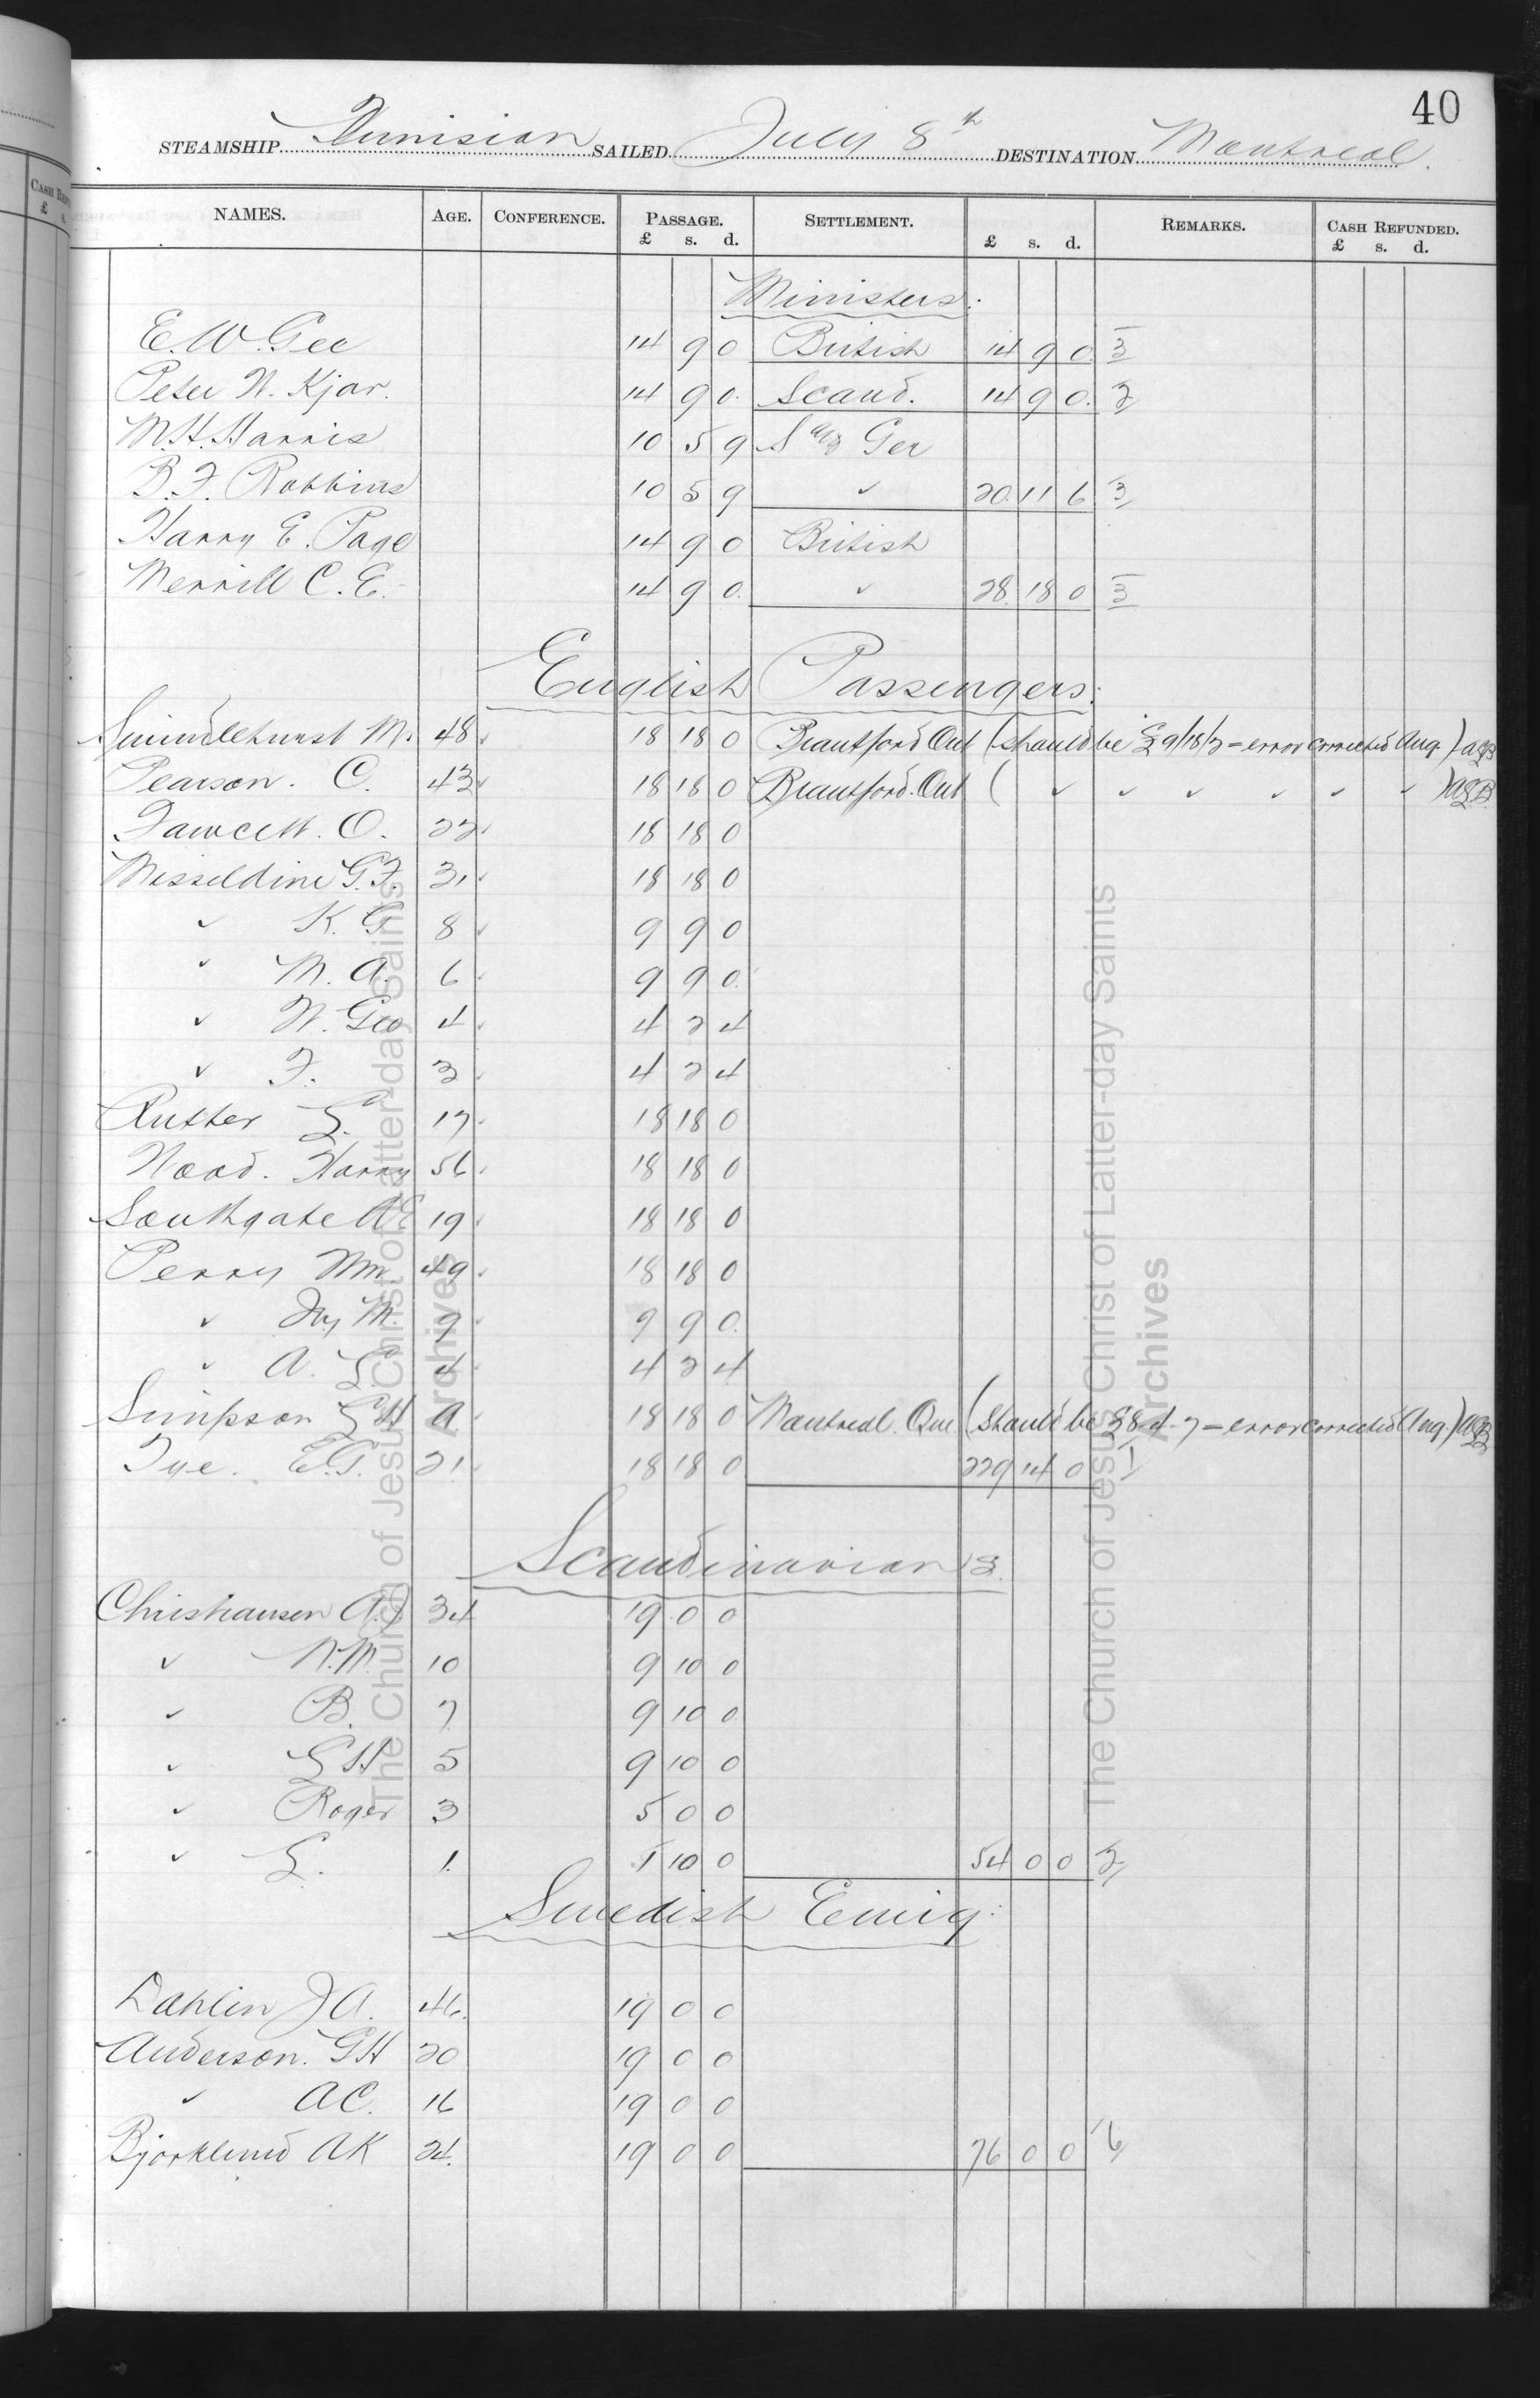 40
STEAMSHIP Tunisian SAILED July 8th DESTINATION Montreal.
NAMES. AGE. CONFERENCE. PASSAGE. £ s. d. SETTLEMENT. £ s. d. REMARKS. CASH REFUNDED. £ s. d.
Ministers:
E. W. Gee 14 9 0 British 14 9 0 3
Peter N. Kjar. 14 9 0 Scand. 14 9 0. 2
M. H. Harris 10 5 9 S Ger
B. F. Robbins 10 5 9 ✓ 20 11 6 3
Harry E. Page 14 9 0 British
Merrill C. E. 14 9 0. ✓ 28 18 0 3
English Passengers:
Swindlehurst M. 48 18 18 0 Brantford Ont (should be £9/18/2 = error corrected Aug.) AGB
Pearson. C. 43 18 18 0 Brantford. Ont ( ✓ ✓ ✓ ✓ ✓ ✓ ) AGB
Fawcett. O. 22 18 18 0
Misseldine G. F. 31 18 18 0
✓ K. G 8 9 9 0
✓ M. A. 6 9 9 0
✓ W. Geo 4 4 2 4
✓ F. 3 4 2 4
Rutter L. 17 18 18 0
Wood. Harry 56 18 18 0
Southgate A E 19 18 18 0
Perry Wm. 49 18 18 0
✓ M. 9 9 9 0
✓ A. L. 4 4 2 4
Simpson G H A 18 18 0 Montreal. Que. (should be £8-4-7 = error corrected Aug.) AGB
Tye. E. G. 21 18 18 0 229 14 0 1
Scandinavians.
Christiansen A. J 34 19 0 0
✓ N. M. 10 9 10 0
✓ B. 7 9 10 0
✓ G H 5 9 10 0
✓ Roger 3 5 0 0
✓ L. 1. 1 10 0 54 0 0 2
Swedish Emig:
Dahlin J A. 46. 19 0 0
Anderson. G H 20 19 0 0
✓ A C. 16 19 0 0
Bjorklund A K 24. 19 0 0 76 0 0 6
The Church of Jesus Christ of Latter-day Saints
Archives
The Church of Jesus Christ of Latter-day Saints
Archives